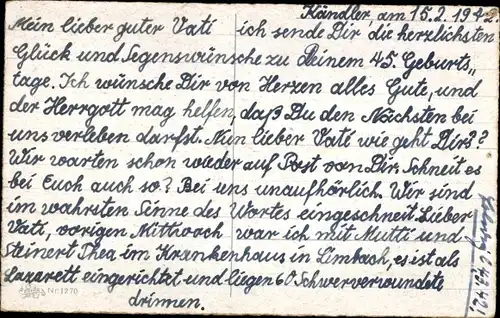 Kändler, am 15.2.1942
Mein lieber guter Vati ich sende Dir die herzlichsten
Glück und Segenswünsche zu Deinem 45. Geburts„
tage. Ich wünsche Dir von Herzen alles Gute, und
der Herrgott mag helfen, daß Du den Nächsten bei
uns verleben darfst. Nun lieber Vati wie geht Dirs??
Wir warten schon wieder auf Post von Dir. Schneit es
bei Euch auch so? Bei uns unaufhörlich. Wir sind
im wahrsten Sinne des Wortes eingeschneit. Lieber
Vati, vorigen Mittwoch war ich mit Mutti und
Steinert Thea im Krankenhaus in Limbach, es ist als
Lazarett eingerichtet und liegen 60 Schwerverwundete
drinnen.
Nr. 1270